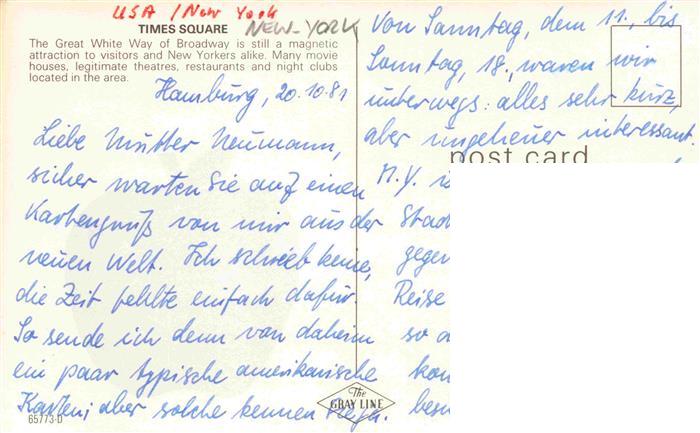 USA / New York
NEW-YORK
TIMES SQUARE
The Great White Way of Broadway is still a magnetic
attraction to visitors and New Yorkers alike. Many movie
houses, legitimate theatres, restaurants and night clubs
located in the area.
Hamburg, 20.10.81
Liebe Mutter Neumann,
sicher warten Sie auf einen
Kartengruß von mir aus der
neuen Welt. Ich schrieb keine,
die Zeit fehlte einfach dafür.
So sende ich denn von daheim
ein paar typische amerikanische
Karten; aber solche kennen
65773-D
The
GRAY LINE
Von Sonntag, dem 11., bis
Sonntag, 18., waren wir
unterwegs: alles sehr kurz,
aber ungeheuer interessant.
post card
N.Y.
Stad
gegen
Reise
so